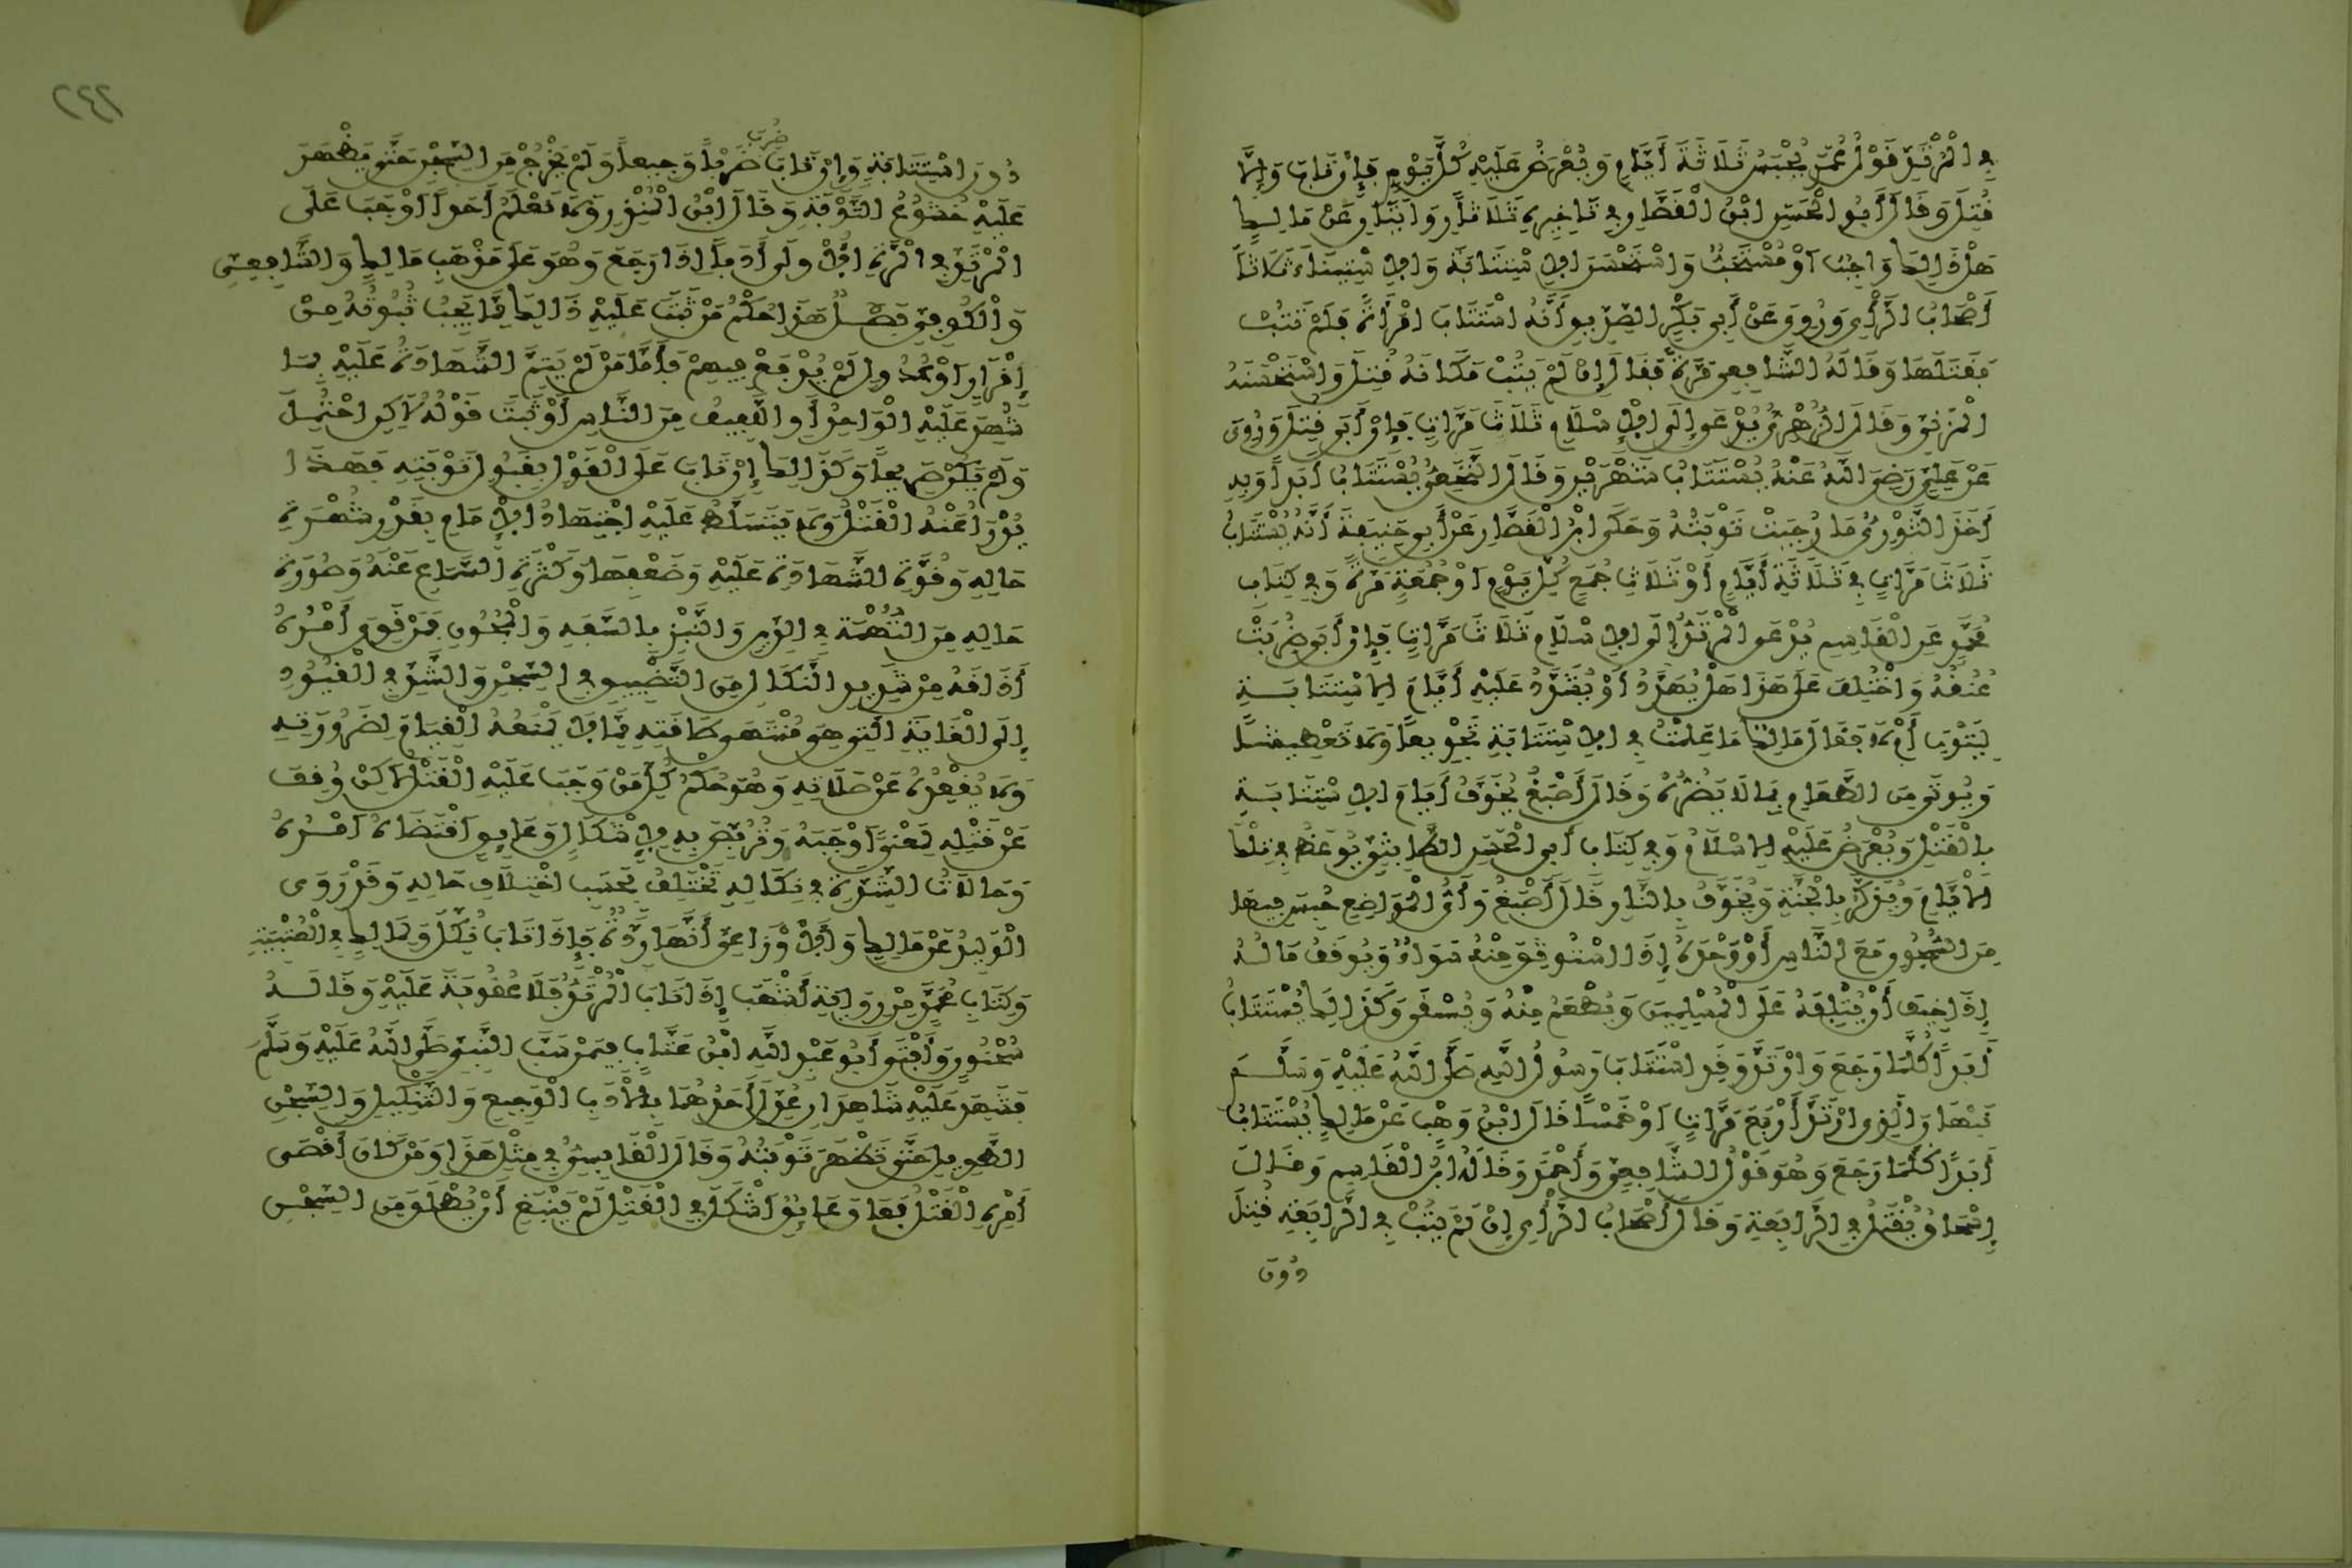 في المرتد قول عمر يحبس ثلاثة أيام ويعرض عليه كل يوم فإن تاب وإلا
قتل وقال أبو الحسن ابن القصار في تأخيره ثلاثا روايتان عن مالك
هل ذالك واجب أو مستحب واستحسن الاستتابة والاستيناء ثلاثا
أصحاب الرأي وروي عن أبي بكر الصديق أنه استتاب امرأة فلم تتب
فقتلها وقاله الشافعي مرة فقال إن لم يتب مكانه قتل واستحسنه
المزني وقال الزهري يدعى إلى الإسلام ثلاث مرات فإن أبى قتل وروي
عن علي رضي الله عنه يستتاب شهرين وقال النخعي يستتاب أبدا وبه
أخذ الثوري ما رجيت توبته وحكى ابن القصار عن أبي حنيفة أنه يستتاب
ثلاث مرات في ثلاثة أيام أو ثلاث جمع كل يوم أو جمعة مرة وفي كتاب
محمد عن القاسم يدعى المرتد إلى الإسلام ثلاث مرات فإن أبى ضربت
عنقه واختلف على هذا هل يهدد أو يشدد عليه أيام الاستتابة
ليتوب أم لا فقال مالك ما علمت في الاستتابة تجويعا ولا تعطيشا
ويوتى من الطعام بما لا يضره وقال أصبغ يخوف أيام الاستتابة
بالقتل ويعرض عليه الإسلام وفي كتاب أبي الحسن الطابثي يوعظ في تلك
الأيام ويذكر بالجنة ويخوف بالنار قال أصبغ وأي المواضع حبس فيها
من السجون مع الناس أو وحده إذا استوثق منه سواء ويوقف ماله
إذا خيف أن يتلفه على المسلمين ويطعم منه ويسقى وكذالك يستتاب
أبدا كلما رجع وارتد وقد استتاب رسول الله صلى الله عليه وسلم
نبهان الذي ارتد أربع مرات أو خمسا قال ابن وهب عن مالك يستتاب
أبدا كلما رجع وهو قول الشافعي وأحمد وقاله ابن القاسم وقال
إسحاق يقتل في الرابعة وقال أصحاب الرأي إن لم يتب في الرابعة قتل
دون
٢٤٢
ضرب
دون استتابة وإن تاب ضربا وجيعا ولم يخرج من السجن حتى يظهر
عليه خشوع التوبة وقال ابن المنذر ولا نعلم أحدا أوجب على
المرتد في المرة الأولى أدبا إذا رجع وهو على مذهب مالك والشافعي
والكوفي فصل هذا حكم من ثبت عليه ذالك بما يجب ثبوته من
إقرار أو عدول لم يدفع فيهم فأما من لم يتم الشهادة عليه بما
شهد عليه الواحد أو اللفيف من الناس أو ثبت قوله لاكن احتمل
ولم يكن صريحا وكذالك إن تاب على القول بقبول توبته فهذا
يدرأ عنه القتل ولا يتسلط عليه اجتهاد الإمام بقدر شهرة
حاله وقوة الشهادة عليه وضعفها وكثرة السماع عنه وصورة
حاله من التهمة في الدين والنبز بالسفه والمجون فمن قوي أمره
أذاقه من شديد النكال من التضييق في السجن والشد في القيود
إلى الغاية التي هي منتهى طاقته مما لا يمنعه القيام لضرورته
ولا يقعده عن صلاته وهو حكم كل من وجب عليه القتل لاكن وقف
عن قتله لمعنى أوجبه وتربص به لإشكال وعايق اقتضاه أمره
وحالات الشدة في نكاله تختلف بحسب اختلاف حاله وقد روى
الوليد عن مالك والأوزاعي أنها ردة فإذا تاب نكل ولمالك في العتبية
وكتاب محمد من رواية أشهب إذا تاب المرتد فلا عقوبة عليه وقاله
سحنون وأفتى أبو عبد الله ابن عتاب فيمن سب النبي صلى الله عليه وسلم
فشهد عليه شاهدان عدل أحدهما بالأدب الوجيع والتنكيل والسجن
الطويل حتى تظهر توبته وقال القابسي في مثل هذا ومن كان أقصى
أمره القتل فعاق عايق أشكل في القتل لم ينبغ أن يطلق من السجن